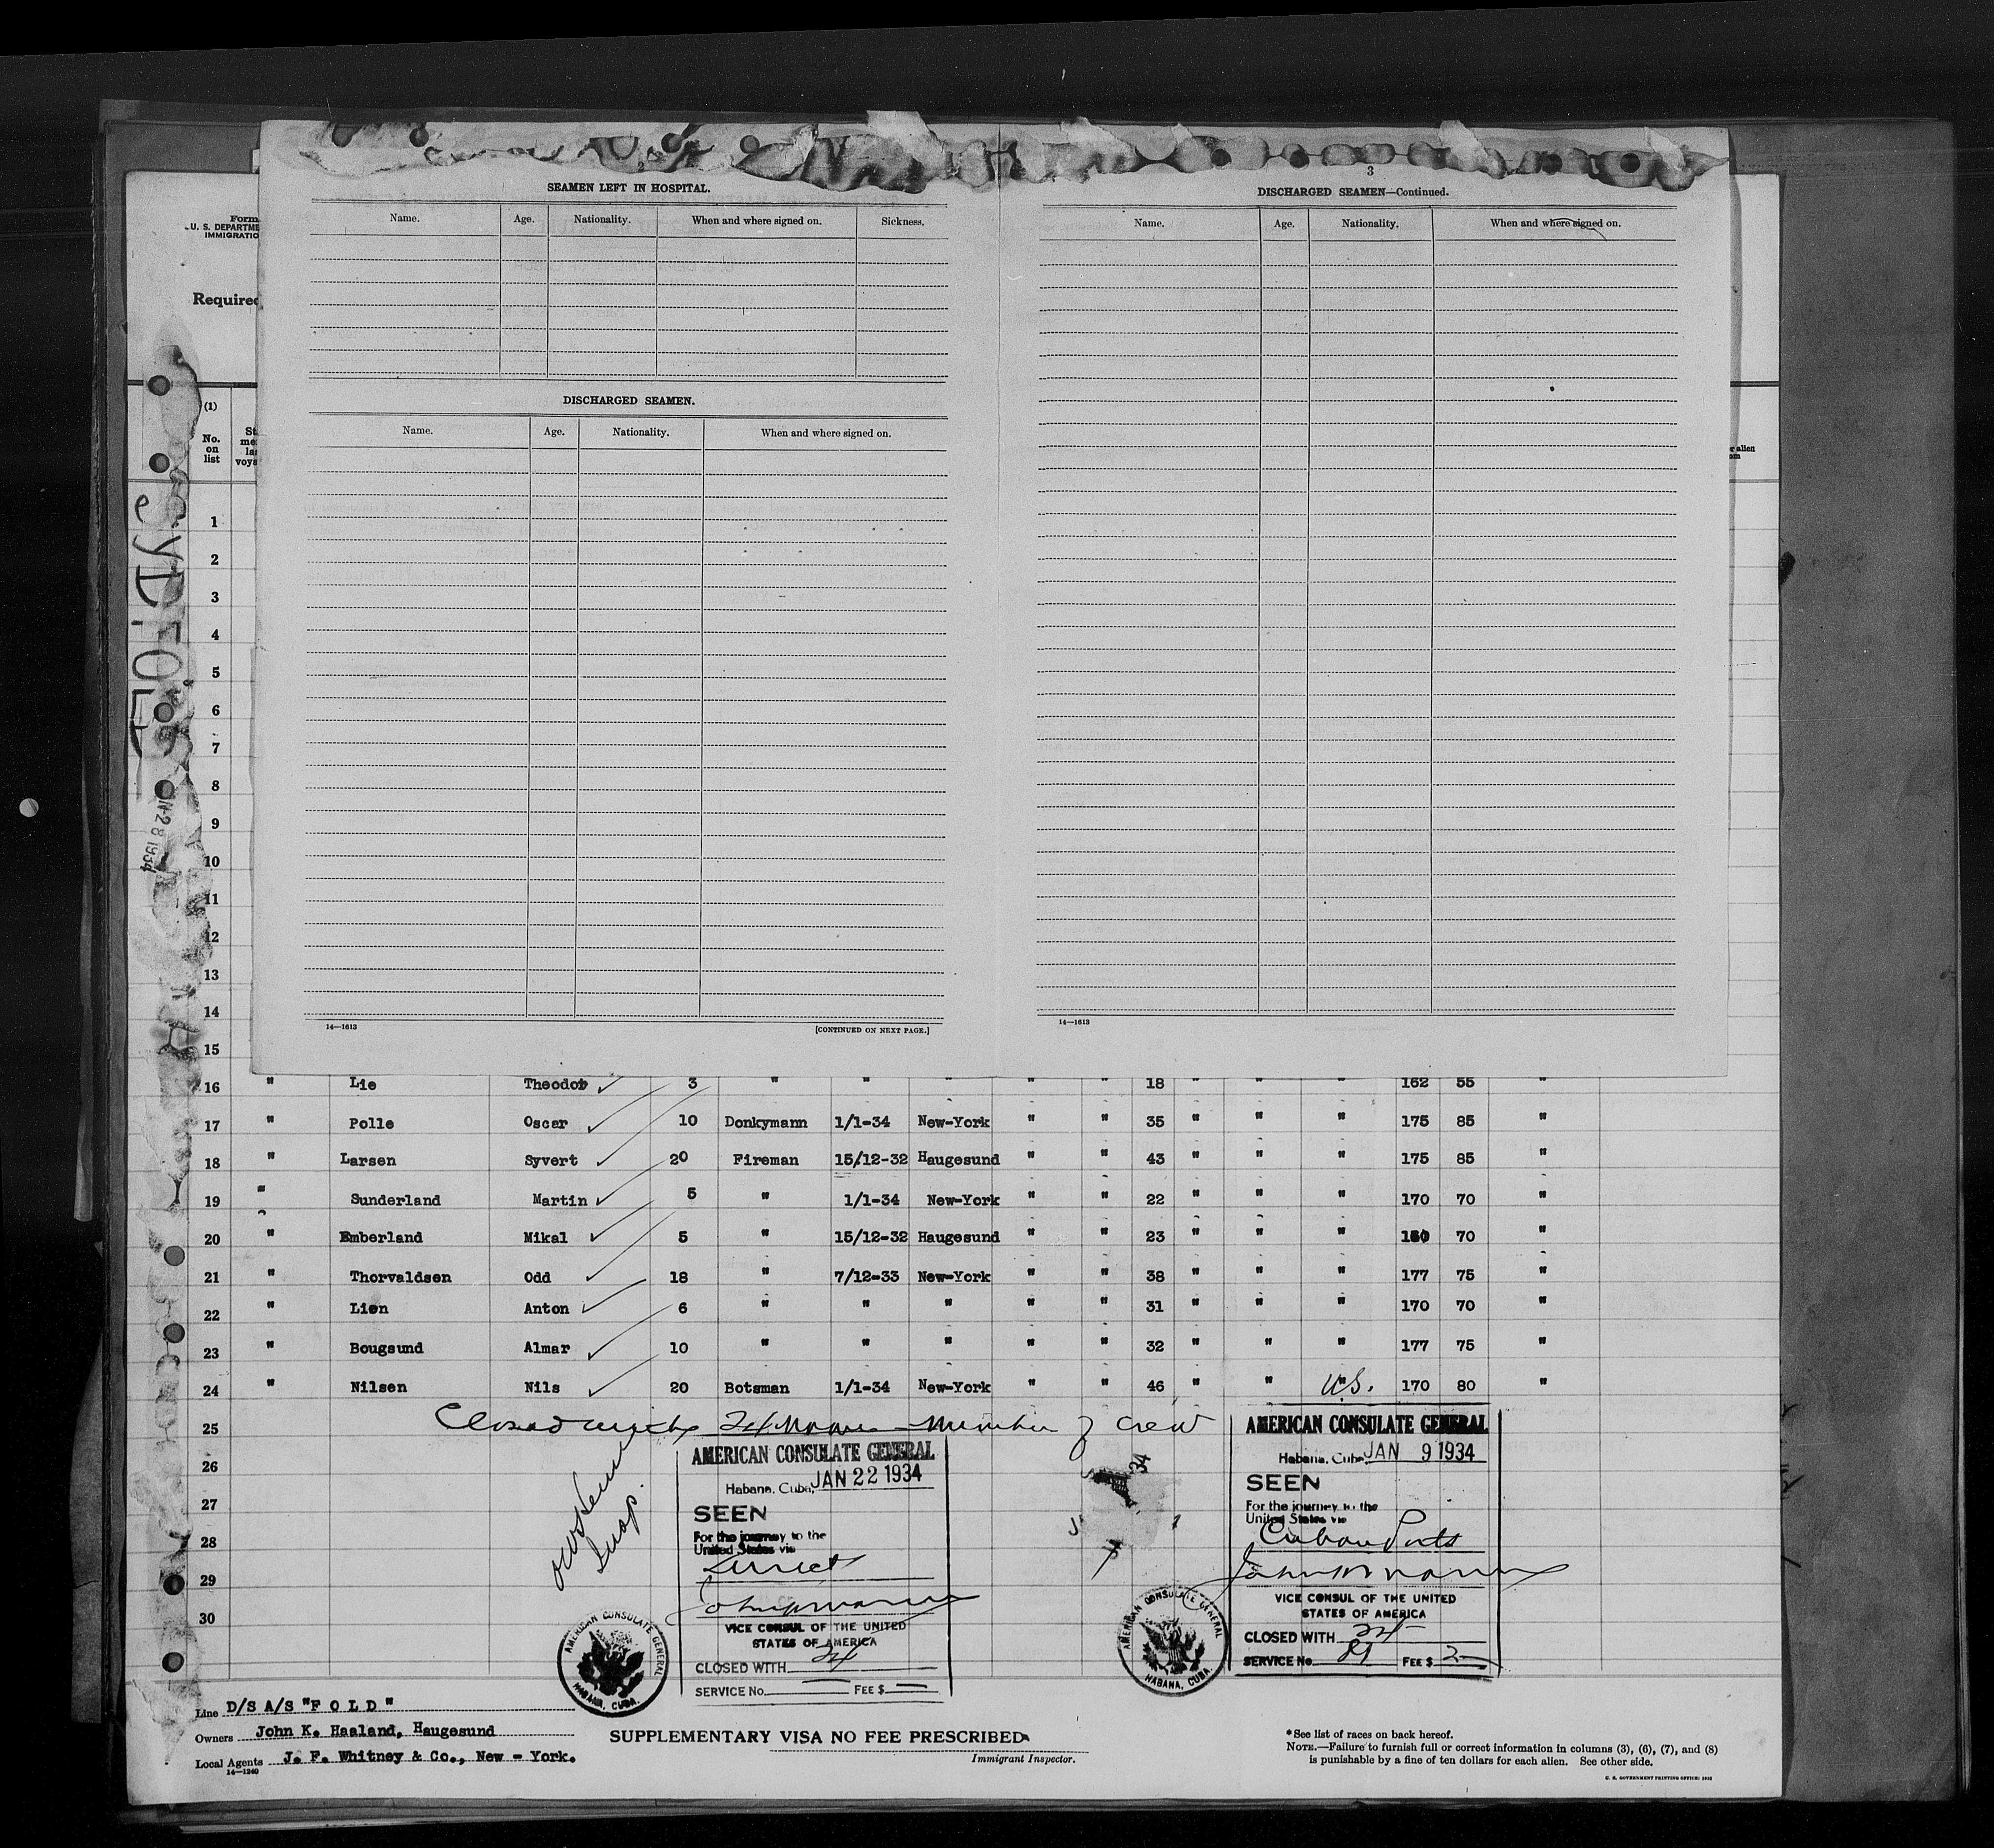 SEAMEN LEFT IN HOSPITAL.
Name. Age. Nationality. When and where signed on. Sickness.
DISCHARGED SEAMEN.
Name. Age. Nationality. When and where signed on.
14—1613 [CONTINUED ON NEXT PAGE.]
3
DISCHARGED SEAMEN—Continued.
Name. Age. Nationality. When and where signed on.
14—1613
Form
U. S. DEPARTME
IMMIGRATIO
Required
(1)
No.
on
list
SYDFOLD
28 1934
1
2
3
4
5
6
7
8
9
10
11
12
13
14
15
16 " Lie Theodor 3 " " " " " 18 " " " 162 55 "
17 " Polle Oscar 10 Donkymann 1/1-34 New-York " " 35 " " " 175 85 "
18 " Larsen Syvert 20 Fireman 15/12-32 Haugesund " " 43 " " " 175 85 "
19 " Sunderland Martin 5 " 1/1-34 New-York " " 22 " " " 170 70 "
20 " Emberland Mikal 5 " 15/12-32 Haugesund " " 23 " " " 70 "
21 " Thorvaldsen Odd 18 " 7/12-33 New-York " " 38 " " " 177 75 "
22 " Lien Anton 6 " " " " " 31 " " " 170 70 "
23 " Bougsund Almar 10 " " " " " 32 " " " 177 75 "
24 " Nilsen Nils 20 Botsman 1/1-34 New-York " " 46 " " U.S. 170 80 "
25 Closed with 24 Member of crew
26
27
28
29
30
AMERICAN CONSULATE GENERAL
Habana, Cuba, JAN 22 1934
SEEN
For the journey to the
United States via
Direct
VICE CONSUL OF THE UNITED
STATES OF AMERICA
CLOSED WITH 24
SERVICE No. — FEE $ —
AMERICAN CONSULATE GENERAL
HABANA, CUBA.
AMERICAN CONSULATE GENERAL
Habana, Cuba, JAN 9 1934
SEEN
For the journey to the
United States via
Cuban Ports
VICE CONSUL OF THE UNITED
STATES OF AMERICA
CLOSED WITH 24
SERVICE No. FEE $ 2
AMERICAN CONSULATE GENERAL
HABANA, CUBA.
Line D/S A/S "F O L D"
Owners John K. Haaland, Haugesund
Local Agents J. F. Whitney & Co., New - York.
14—1240
SUPPLEMENTARY VISA NO FEE PRESCRIBED
Immigrant Inspector.
*See list of races on back hereof.
NOTE.—Failure to furnish full or correct information in columns (3), (6), (7), and (8)
is punishable by a fine of ten dollars for each alien. See other side.
U. S. GOVERNMENT PRINTING OFFICE: 1932